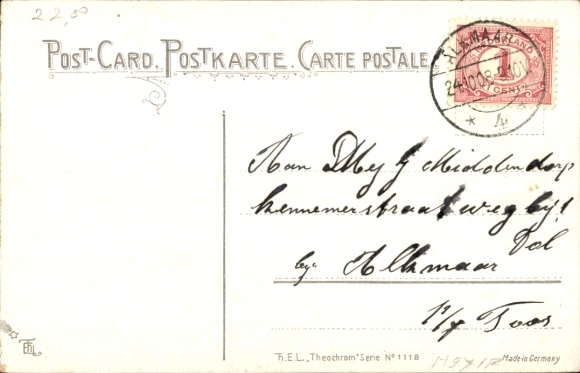 22,50
POST-CARD. POSTKARTE. CARTE POSTALE
ALKMAAR
24.10.08
4
1
CENT
Aan Mej G Middendorp
Kennemerstraatweg bij
Dol
bij Alkmaar
Toos
Th.E.L. „Theochrom" Serie No 1118
Made in Germany